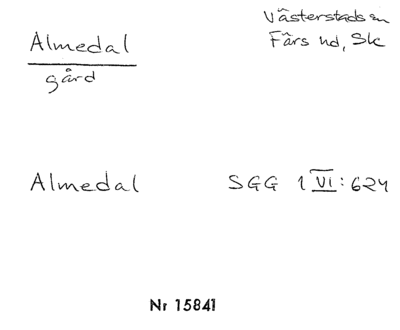 Almedal
gård
Västerstads sn
Färs hd, Sk
Almedal SGG 1 VI: 624
Nr 15841